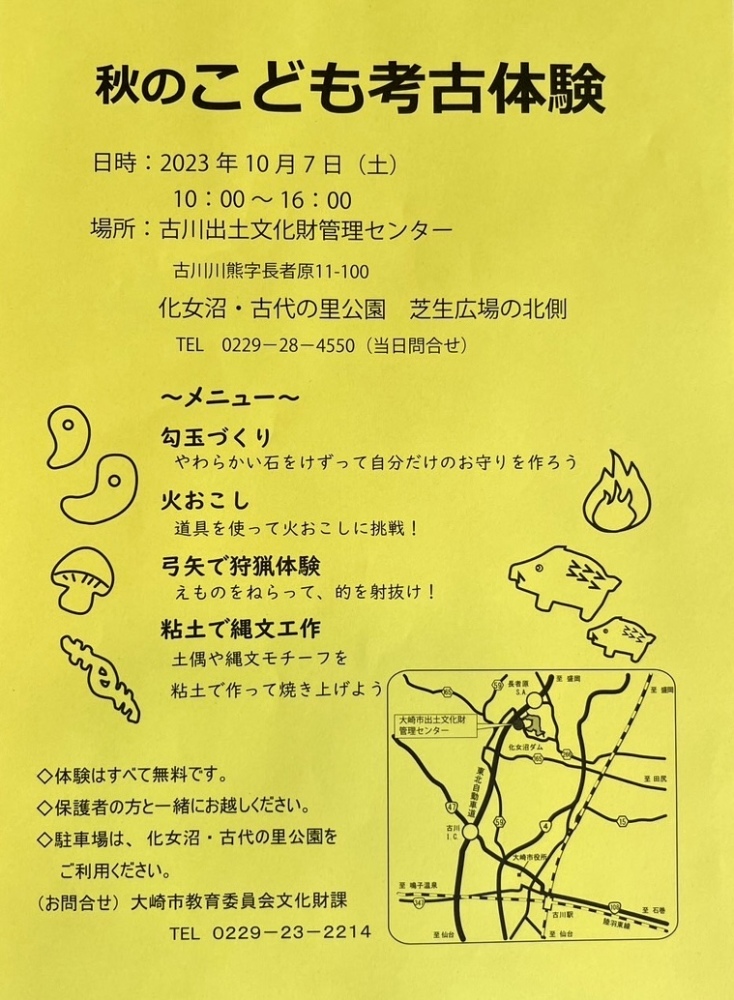 秋のこども考古体験
日時：2023年10月7日（土）
10：00～16：00
場所：古川出土文化財管理センター
古川川熊字長者原11-100
化女沼・古代の里公園　芝生広場の北側
TEL　0229－28－4550（当日問合せ）
～メニュー～
勾玉づくり
やわらかい石をけずって自分だけのお守りを作ろう
火おこし
道具を使って火おこしに挑戦！
弓矢で狩猟体験
えものをねらって、的を射抜け！
粘土で縄文工作
土偶や縄文モチーフを
粘土で作って焼き上げよう
◇体験はすべて無料です。
◇保護者の方と一緒にお越しください。
◇駐車場は、化女沼・古代の里公園を
ご利用ください。
（お問合せ）大崎市教育委員会文化財課
TEL　0229－23－2214
長者原
S.A.
至 盛岡
至 盛岡
59
大崎市出土文化財
管理センター
化女沼ダム
至 田尻
東北自動車道
47
59
4
15
古川
I.C.
大崎市役所
至 鳴子温泉
347
108
至 石巻
古川駅
陸羽東線
至 仙台
至 仙台